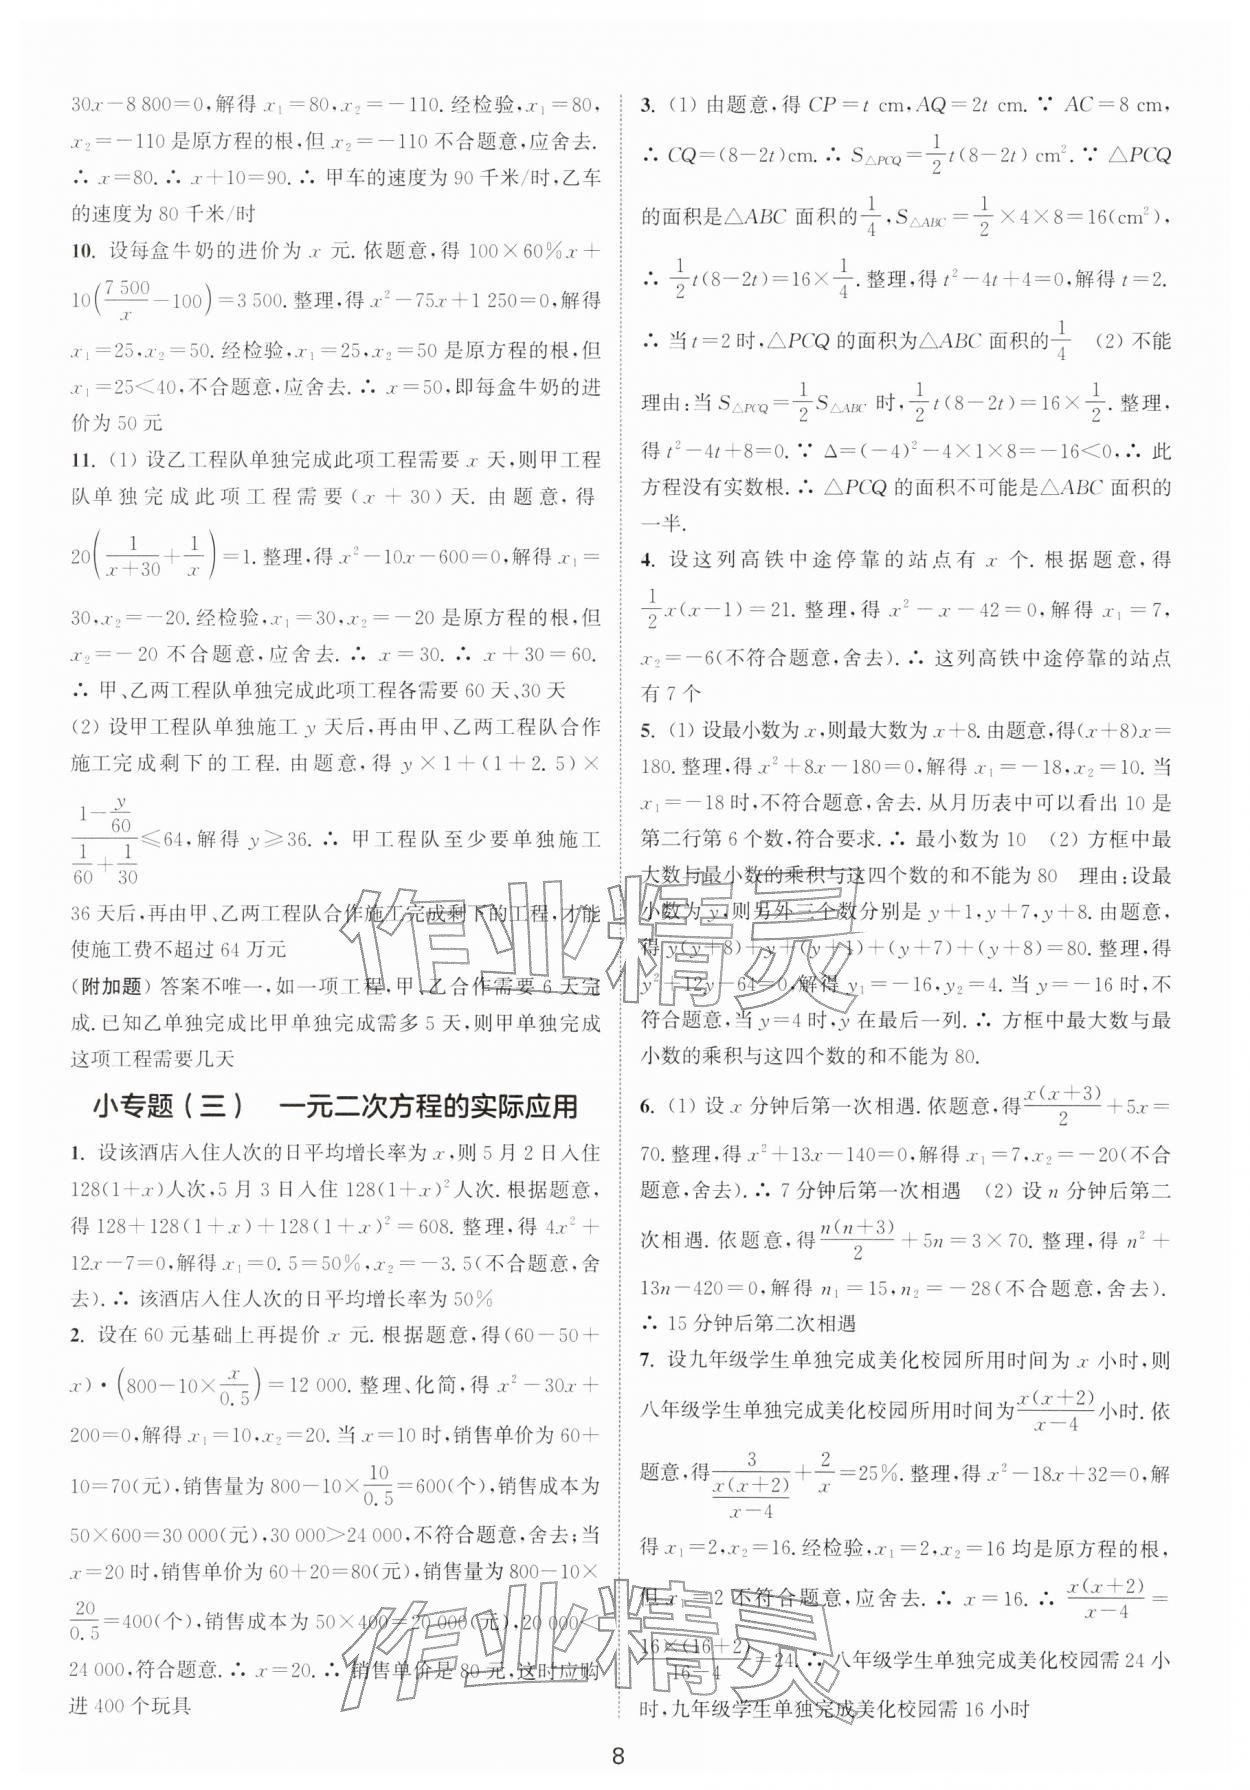 30x－8 800＝0,解得 x₁＝80,x₂＝－110. 经检验,x₁＝80,
x₂＝－110 是原方程的根,但 x₂＝－110 不合题意,应舍去.
∴ x＝80. ∴ x＋10＝90. ∴ 甲车的速度为 90 千米/时,乙车
的速度为 80 千米/时
10. 设每盒牛奶的进价为 x 元. 依题意,得 100×60%x＋
10(7 500/x－100)＝3 500. 整理,得 x²－75x＋1 250＝0,解得
x₁＝25,x₂＝50. 经检验,x₁＝25,x₂＝50 是原方程的根,但
x₁＝25＜40,不合题意,应舍去. ∴ x＝50,即每盒牛奶的进
价为 50 元
11. (1) 设乙工程队单独完成此项工程需要 x 天,则甲工程
队单独完成此项工程需要(x＋30)天. 由题意,得
20(1/(x＋30)＋1/x)＝1. 整理,得 x²－10x－600＝0,解得 x₁＝
30,x₂＝－20. 经检验,x₁＝30,x₂＝－20 是原方程的根,但
x₂＝－20 不合题意,应舍去. ∴ x＝30. ∴ x＋30＝60.
∴ 甲、乙两工程队单独完成此项工程各需要 60 天、30 天
(2) 设甲工程队单独施工 y 天后,再由甲、乙两工程队合作
施工完成剩下的工程. 由题意,得 y×1＋(1＋2.5)×
(1－y/60)/(1/60＋1/30)≤64,解得 y≥36. ∴ 甲工程队至少要单独施工
36 天后,再由甲、乙两工程队合作施工完成剩下的工程,才能
使施工费不超过 64 万元
(附加题) 答案不唯一,如一项工程,甲、乙合作需要 6 天完
成. 已知乙单独完成比甲单独完成需多 5 天,则甲单独完成
这项工程需要几天
小专题(三) 一元二次方程的实际应用
1. 设该酒店入住人次的日平均增长率为 x,则 5 月 2 日入住
128(1＋x)人次,5 月 3 日入住 128(1＋x)²人次. 根据题意,
得 128＋128(1＋x)＋128(1＋x)²＝608. 整理,得 4x²＋
12x－7＝0,解得 x₁＝0.5＝50%,x₂＝－3.5(不合题意,舍
去). ∴ 该酒店入住人次的日平均增长率为 50%
2. 设在 60 元基础上再提价 x 元. 根据题意,得(60－50＋
x)·(800－10×x/0.5)＝12 000. 整理、化简,得 x²－30x＋
200＝0,解得 x₁＝10,x₂＝20. 当 x＝10 时,销售单价为 60＋
10＝70(元),销售量为 800－10×10/0.5＝600(个),销售成本为
50×600＝30 000(元),30 000＞24 000,不符合题意,舍去;当
x＝20 时,销售单价为 60＋20＝80(元),销售量为 800－10×
20/0.5＝400(个),销售成本为 50×400＝20 000(元),20 000＜
24 000,符合题意. ∴ x＝20. ∴ 销售单价是 80 元,这时应购
进 400 个玩具
3. (1) 由题意,得 CP＝t cm,AQ＝2t cm. ∵ AC＝8 cm,
∴ CQ＝(8－2t)cm. ∴ S△PCQ＝1/2t(8－2t) cm². ∵ △PCQ
的面积是△ABC 面积的1/4,S△ABC＝1/2×4×8＝16(cm²),
∴ 1/2t(8－2t)＝16×1/4. 整理,得 t²－4t＋4＝0,解得 t＝2.
∴ 当 t＝2 时,△PCQ 的面积为△ABC 面积的1/4 (2) 不能
理由:当 S△PCQ＝1/2S△ABC 时,1/2t(8－2t)＝16×1/2. 整理,
得 t²－4t＋8＝0. ∵ Δ＝(－4)²－4×1×8＝－16＜0,∴ 此
方程没有实数根. ∴ △PCQ 的面积不可能是△ABC 面积的
一半.
4. 设这列高铁中途停靠的站点有 x 个. 根据题意,得
1/2x(x－1)＝21. 整理,得 x²－x－42＝0,解得 x₁＝7,
x₂＝－6(不符合题意,舍去). ∴ 这列高铁中途停靠的站点
有 7 个
5. (1) 设最小数为 x,则最大数为 x＋8. 由题意,得(x＋8)x＝
180. 整理,得 x²＋8x－180＝0,解得 x₁＝－18,x₂＝10. 当
x₁＝－18 时,不符合题意,舍去. 从月历表中可以看出 10 是
第二行第 6 个数,符合要求. ∴ 最小数为 10 (2) 方框中最
大数与最小数的乘积与这四个数的和不能为 80 理由:设最
小数为 y,则另外三个数分别是 y＋1,y＋7,y＋8. 由题意,
得 y(y＋8)＋y＋(y＋1)＋(y＋7)＋(y＋8)＝80. 整理,得
y²＋12y－64＝0,解得 y₁＝－16,y₂＝4. 当 y＝－16 时,不
符合题意,当 y＝4 时,y 在最后一列. ∴ 方框中最大数与最
小数的乘积与这四个数的和不能为 80.
6. (1) 设 x 分钟后第一次相遇. 依题意,得x(x＋3)/2＋5x＝
70. 整理,得 x²＋13x－140＝0,解得 x₁＝7,x₂＝－20(不合
题意,舍去). ∴ 7 分钟后第一次相遇 (2) 设 n 分钟后第二
次相遇. 依题意,得n(n＋3)/2＋5n＝3×70. 整理,得 n²＋
13n－420＝0,解得 n₁＝15,n₂＝－28(不合题意,舍去).
∴ 15 分钟后第二次相遇
7. 设九年级学生单独完成美化校园所用时间为 x 小时,则
八年级学生单独完成美化校园所用时间为x(x＋2)/(x－4)小时. 依
题意,得3/(x(x＋2)/(x－4))＋2/x＝25%. 整理,得 x²－18x＋32＝0,解
得 x₁＝2,x₂＝16. 经检验,x₁＝2,x₂＝16 均是原方程的根,
但 x₁＝2 不符合题意,应舍去. ∴ x＝16. ∴ x(x＋2)/(x－4)＝
16×(16＋2)/(16－4)＝24. ∴ 八年级学生单独完成美化校园需 24 小
时,九年级学生单独完成美化校园需 16 小时
8
作业精灵
作业精灵